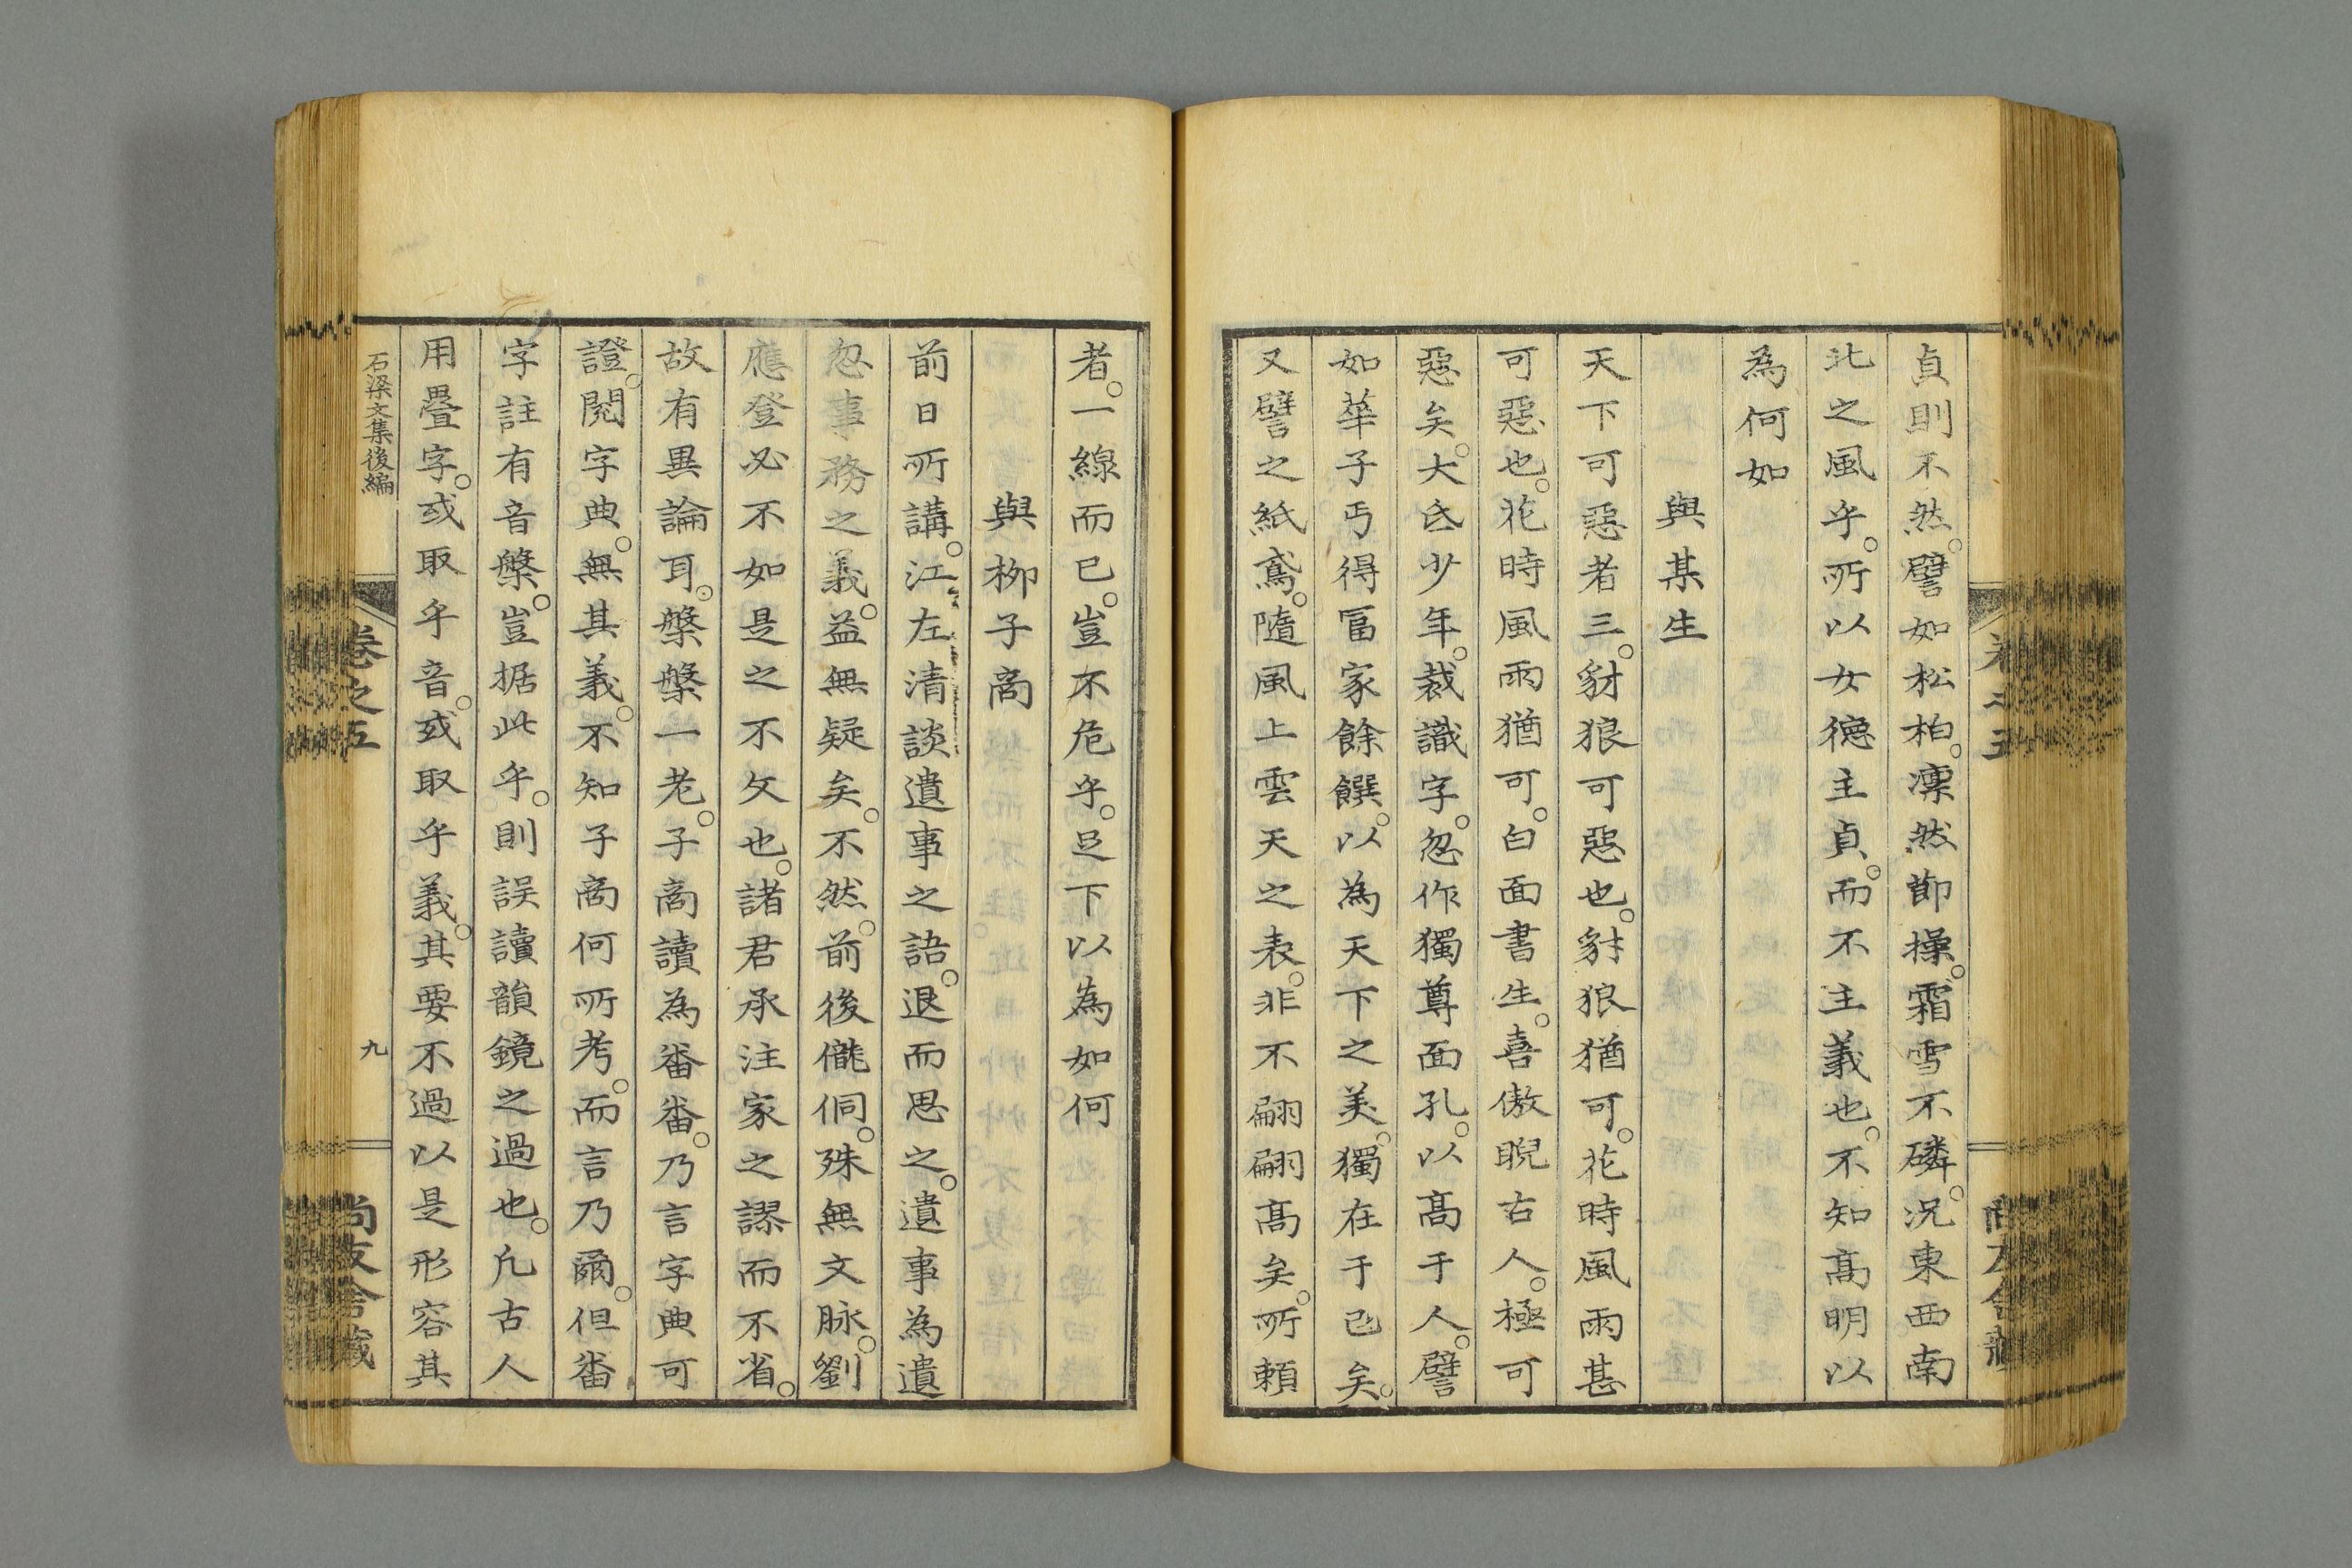 貞則不然。譬如松柏。凛然節操。霜雪不磷。况東西南
北之風乎。所以女德主貞。而不主義也。不知髙明以
為何如
與某生
天下可惡者三。豺狼可惡也。豺狼猶可。花時風雨甚
可惡也。花時風雨猶可。白面書生。喜傲睨古人。極可
惡矣。大氐少年。裁識字。忽作獨尊面孔。以髙于人。譬
如華子丐得冨家餘饌。以為天下之美。獨在于己矣。
又譬之紙鳶。隨風上雲天之表。非不翩翩髙矣。所頼
者。一線而已。豈不危乎。足下以為如何
與栁子啇
前日所講。江左清談遺事之語。退而思之。遺事為遺
忽事務之義。益無疑矣。不然。前後儱侗。殊無文脉。劉
應登必不如是之不文也。諸君承注家之謬而不省。
故有異論耳。槃槃一老。子啇讀為畨畨。乃言字典可
證。閱字典。無其義。不知子啇何所考。而言乃爾。但畨
字註有音槃。豈据此乎。則誤讀韻鏡之過也。凢古人
用疊字。或取乎音。或取乎義。其要不過以是形容其
石梁文集後編
卷之五
九
尚友舍藏